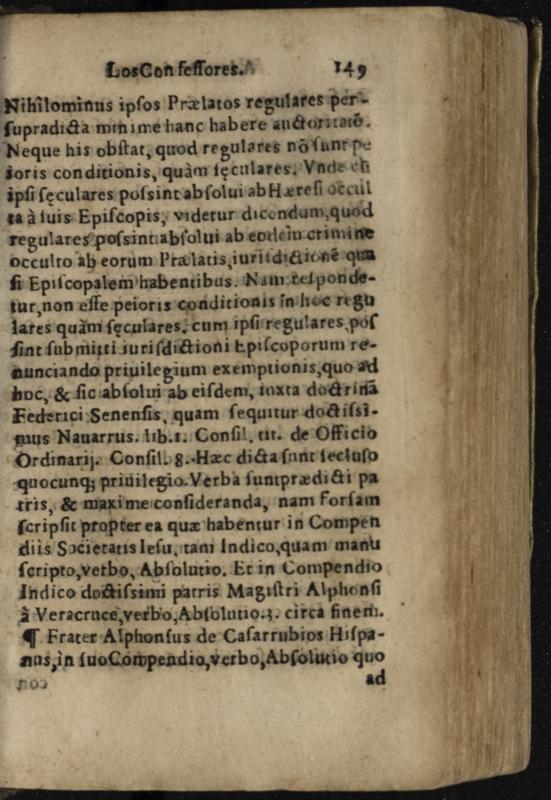 Los Confessores. 149
Nihilominus ipsos Prælatos regulares per-
supradicta minime hanc habere auctoritatẽ.
Neque his obstat, quod regulares nõ sunt pe
ioris conditionis, quàm sęculares. Vnde
ipsi sęculares possint absolui ab Hæresi occul
ta à suis Episcopis, videtur dicendum, quod
regulares possint absolui ab eodem crimine
occulto ab eorum Prælatis, iurisdictionẽ qua
si Episcopalem habentibus. Nam responde-
tur, non esse peioris conditionis in hoc regu
lares quàm sęculares, cum ipsi regulares, pos
sint submitti iurisdictioni Episcoporum re-
nunciando priuilegium exemptionis, quo ad
hoc, & sic absolui ab eisdem, iuxta doctrinã
Federici Senensis, quam sequitur doctissi-
mus Nauarrus. lib. 1. Consil. tit. de Officio
Ordinarij. Consil. 8. Hæc dicta sunt secluso
quocunq; priuilegio. Verba sunt prædicti pa
tris, & maxime consideranda, nam forsam
scripsit propter ea quæ habentur in Compen
diis Societatis Iesu, tam Indico, quam manu
scripto, verbo, Absolutio. Et in Compendio
Indico doctissimi patris Magistri Alphonsi
à Veracruce, verbo, Absolutio. 3. circa finem.
¶ Frater Alphonsus de Casarrubios Hispa-
nus, in suo Compendio, verbo, Absolutio quo
ad